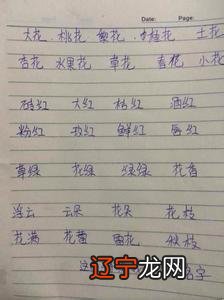 Date: Page:
大花 桃花 梨花 桂花 土花
杏花 水果花 草花 春花 小花
砖红 大红 桃红 酒红
粉红 玫红 鲜红 唇红
草绿 花绿 绿绿 花香
浮云 云朵 花朵 花枝
花满 花蕾 雪花 秋枝
这 名字
辽宁龙网